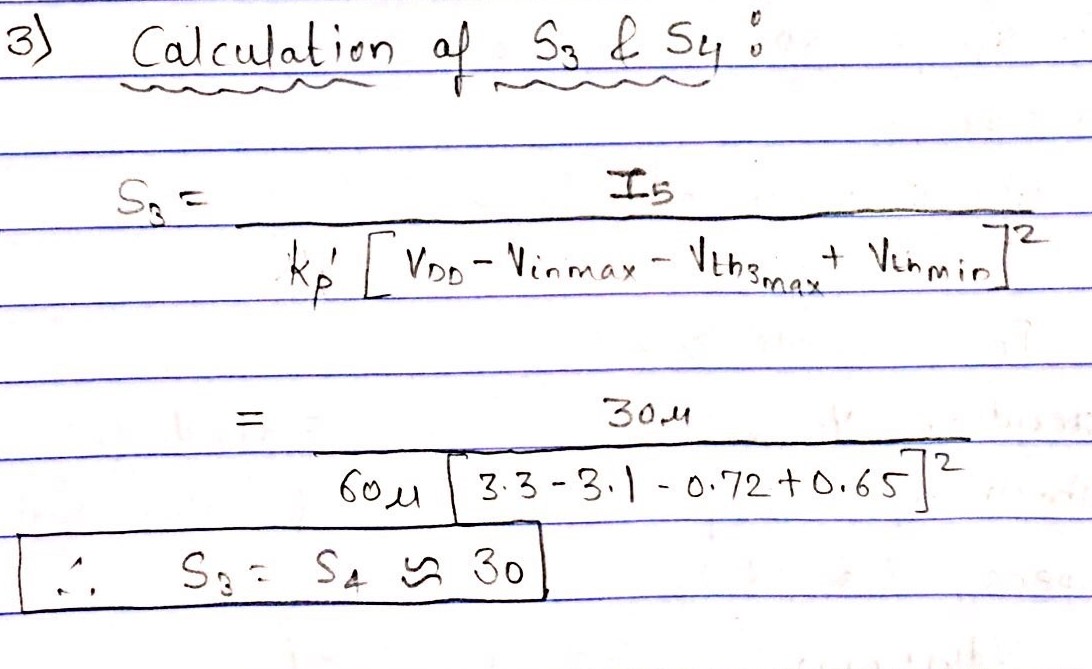 3) Calculation of S3 & S4 :
S3 = I5
kp' [ VDD - Vinmax - Vth3max + Vthmin ]^2
= 30μ
60μ [ 3.3 - 3.1 - 0.72 + 0.65 ]^2
∴ S3 = S4 ≈ 30